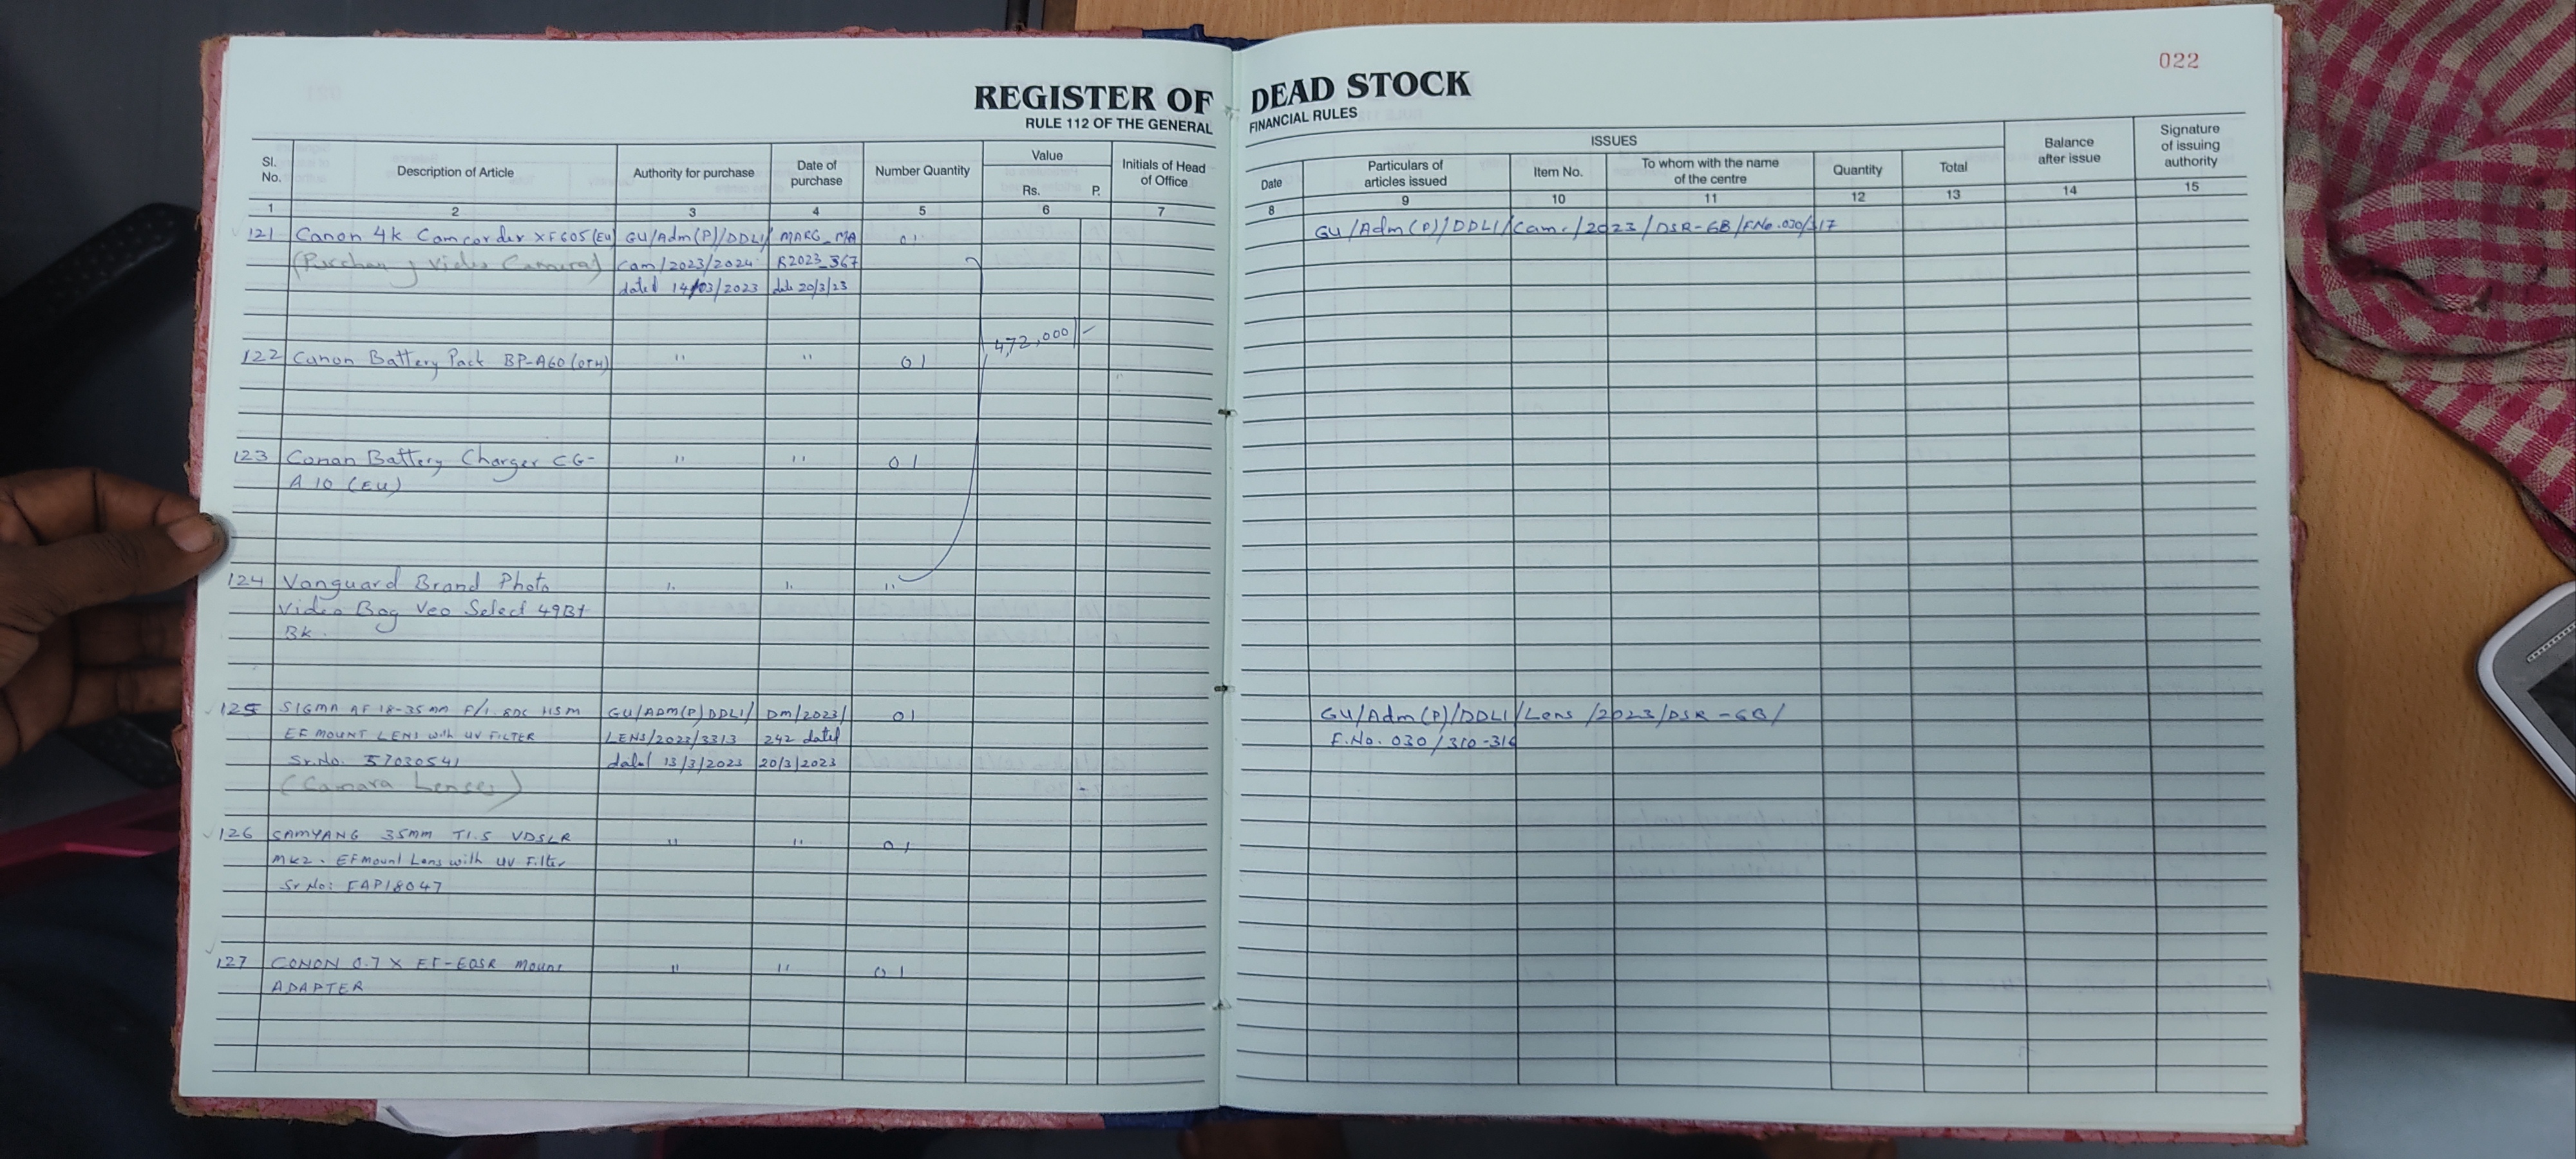 022
REGISTER OF DEAD STOCK
RULE 112 OF THE GENERAL FINANCIAL RULES
Sl. No.
Description of Article
Authority for purchase
Date of purchase
Number Quantity
Value
Rs. P.
Initials of Head of Office
ISSUES
Date
Particulars of articles issued
Item No.
To whom with the name of the centre
Quantity
Total
Balance after issue
Signature of issuing authority
1 2 3 4 5 6 7 8 9 10 11 12 13 14 15
121 Canon 4k Camcorder XF605 (EU) GU/Adm(P)/DDLI/ MARG_MA 01 GU/Adm(P)/DDLI/Cam./2023/DSR-GB/F.No.030/317
(Purchan g Video Camera) Cam/2023/2024 R2023_367
dated 14/03/2023 dt. 20/3/23
472,000/-
122 Canon Battery Pack BP-A60 (OTH) " " 01
123 Conan Battery Charger CG- " " 01
A10 (EU)
124 Vanguard Brand Photo " " "
Video Bag Veo Select 49Bt
Bk.
125 SIGMA AF 18-35mm F/1.8DC HSM GU/ADM(P)DDLI/ DM/2023/ 01 GU/Adm(P)/DDLI/Lens/2023/DSR-GB/
EF MOUNT LENS with UV FILTER LENS/2023/3313 242 dated F.No. 030/310-316
Sr.No. 57030541 dated 13/3/2023 20/3/2023
(Camara Lenses)
126 SAMYANG 35mm T1.5 VDSLR " " 01
MK2. EF Mount Lens with UV Filter
Sr No: FAP18047
127 CONON 0.7X EF-EOSR Mount " " 01
ADAPTER